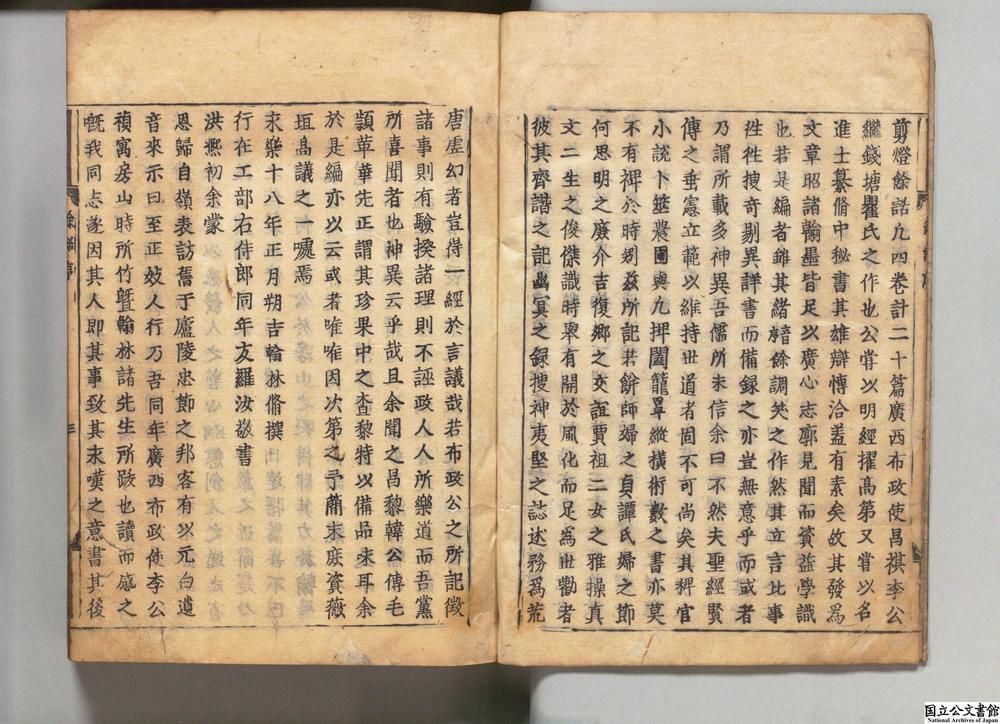 剪燈餘話九四卷計二十篇廣西布政使昌祺李公
繼錢塘瞿氏之作也公嘗以明經擢高第又嘗以名
進士纂脩中秘書其雄辯博洽蓋有素矣故其發為
文章昭諸翰墨皆足以廣心志廓見聞而資益學識
也若是編者雖其緒餘調笑之作然其立言比事
徃徃搜奇剔異詳書而備録之亦豈無意乎而或者
乃謂所載多神異吾儒所未信余曰不然夫聖經賢
傳之垂憲立範以維持世道者固不可尚矣其稗官
小說卜筮農圃與凡捭闔籠罩縱橫術數之書亦莫
不有裨於時矧兹所記若餅師婦之貞譚氏婦之節
何思明之廉介吉復卿之交誼賈祖二女之雅操真
文二生之俊傑識時舉有關於風化而足為世勸者
彼其齊諧之記幽冥之録搜神夷堅之誌述務為荒
唐虛幻者豈得一經於言議哉若布政公之所記徵
諸事則有驗揆諸理則不誣政人人所樂道而吾黨
所喜聞者也神異云乎哉且余聞之昌黎韓公傳毛
頴革華先正謂其珍果中之楂黎特以備品味耳余
於是編亦以云或者唯唯因次第之予蕑末庻資薇
垣髙議之一噱焉
永樂十八年正月朔吉翰林脩撰
行在工部右侍郎同年友羅汝敬書
洪熈初余蒙
恩歸自嶺表訪舊于廬陵忠節之邦客有以元白遺
音來示曰至正妓人行乃吾同年廣西布政使李公
禎寓房山時所作曁翰林諸先生所跋也讀而感之
嘅我同志遂因其人即其事致其末嘆之意書其後
国立公文書館
National Archives of Japan